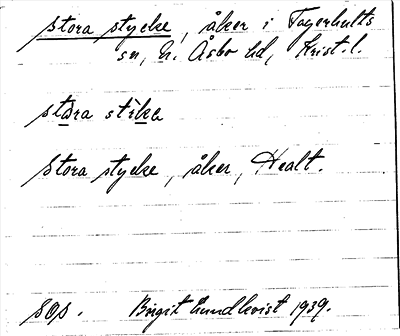 stora stycke, åker i Fagerhults
sn, N. Åsbo hd, Krist. l.
stora stika
Stora stycke, åker, Healt.
SOS. Birgit Lundkvist 1939.